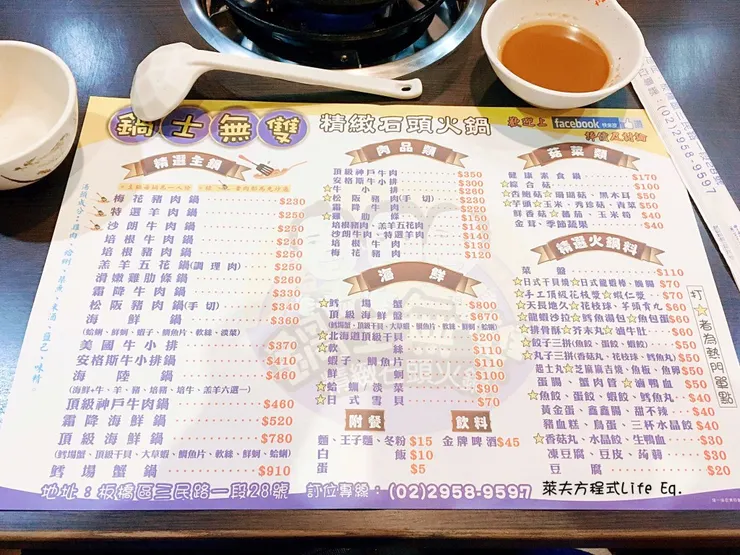 鍋士無雙 精緻石頭火鍋 歡迎上facebook
精選全鍋
梅花豬肉鍋 $230
特選羊肉鍋 $250
沙朗牛肉鍋 $250
培根牛肉鍋 $240
培根豬肉鍋 $250
羔羊五花鍋(調理肉) $250
滑嫩雞肋條鍋 $260
霜降牛肉鍋 $330
松阪豬肉鍋(手切) $340
海鮮鍋 $360
(蛤蜊、鮮蚵、蝦子、鯛魚片、軟絲、淡菜)
美國牛小排 $370
安格斯牛小排鍋 $410
海陸鍋 $460
(海鮮+牛、羊、豬、培豬、培牛、羔羊六選一)
頂級神戶牛肉鍋 $460
霜降海鮮鍋 $520
頂級海鮮鍋 $780
(鱈場蟹、頂級干貝、大草蝦、鯛魚片、軟絲、鮮蚵、蛤蜊)
鱈場蟹鍋 $910
肉品類
頂級神戶牛肉 $350
安格斯牛小排 $300
☆牛小排
☆松阪豬肉(手切) $230
霜降牛肉 $220
☆雞肋條 $150
培根豬肉、羔羊五花肉 $140
沙朗牛肉、特選羊肉 $140
培根牛肉 $130
梅花豬肉 $120
海鮮
☆鱈場蟹 $800
☆頂級海鮮盤 $670
(鱈場蟹、頂級干貝、大草蝦、鯛魚片、軟絲、鮮蚵、蛤蜊)
☆北海道頂級干貝 $200
☆軟絲 $110
蝦子、鯛魚片 $110
鮮蚵 $100
☆蛤蜊/淡菜 $90
☆日式雪貝 $70
附餐
麵、王子麵、冬粉 $15
白飯 $10
蛋 $5
飲料
金牌啤酒 $45
菇菜類
健康素食鍋 $170
☆綜合菇 $100
☆杏鮑菇、珊瑚菇、黑木耳 $50
☆芋頭、玉米、青菜 $50
鮮香菇、蕃茄、玉米筍 $40
金茸、季節蔬果 $40
精選火鍋料
菜盤 $110
$70
☆手工頂級花枝漿、蝦仁漿 $70
☆天長地久、花枝球、芋頭 $60
☆龍蝦沙拉、鱈魚湯包、魚包蛋 $60
☆排骨酥、芥末丸、滷牛肚 $60
☆餃子三拼(魚餃、蛋餃、蝦餃) $50
☆丸子三拼(香菇丸、花枝球、鱈魚丸) $50
起士丸、芝麻麻吉燒、魚板、魚卵 $50
蛋腸、蟹肉管、滷鴨血 $50
☆魚餃、蛋餃、蝦餃、鱈魚丸 $50
黃金蛋、鑫鑫腸、甜不辣 $40
豬血糕、鳥蛋、三杯水晶餃 $40
☆香菇丸、水晶餃、生鴨血 $30
凍豆腐、豆皮、蒟蒻 $30
豆腐 $20
打☆者為熱門單點
地址：板橋區三民路一段28號 訂位專線：(02)2958-9597 萊夫方程式Life Eq.
(02)2958-9591